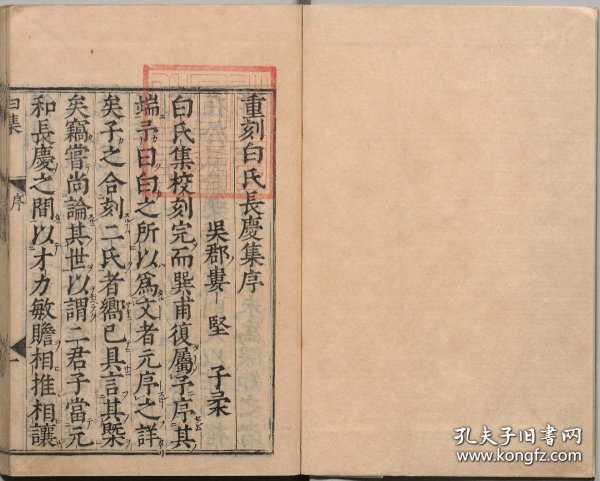 重刻白氏長慶集序
吳郡婁堅子柔
白氏集校刻完而巽甫復屬予序其
端予曰白之所以爲文者元序之詳
矣予之合刻二氏者嚮已具言其槩
矣竊嘗尚論其世以謂二君子當元
和長慶之間以才力敏贍相推相讓
白集
序
一
孔夫子旧书网
kongfz.com